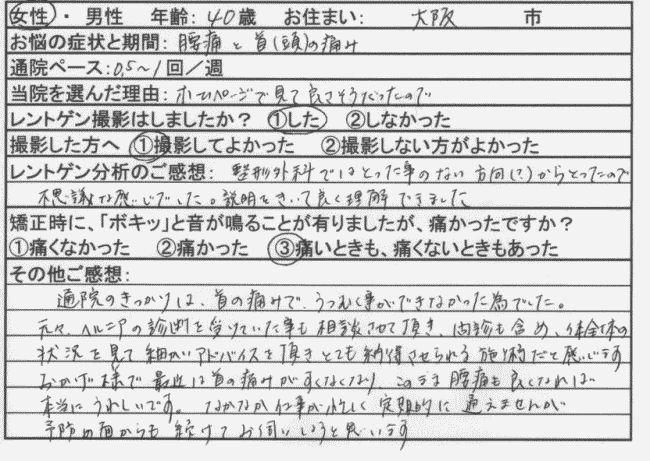 女性・男性 年齢：40歳 お住まい：大阪市
お悩の症状と期間：腰痛と首(頭)の痛み
通院ペース：0.5～1回／週
当院を選んだ理由：ホームページで見て良さそうだったので
レントゲン撮影はしましたか？ ①した ②しなかった
撮影した方へ ①撮影してよかった ②撮影しない方がよかった
レントゲン分析のご感想：整形外科ではとった事のない方向(?)からとったので
不思議な感じでした。説明をきいて良く理解できました
矯正時に、「ボキッ」と音が鳴ることが有りましたが、痛かったですか？
①痛くなかった ②痛かった ③痛いときも、痛くないときもあった
その他ご感想：
通院のきっかけは、首の痛みで、うつむく事ができなかった為でした。
元々、ヘルニアの診断を受けていた事も相談させて頂き、問診も含め、体全体の
状況を見て細かいアドバイスを頂きとても納得させられる施術だと感じます
おかげ様で最近は首の痛みがすくなくなり、このまま腰痛も良くなれば
本当にうれしいです。なかなか仕事が忙しく定期的に通えませんが
予防の面からも続けてお伺いしようと思います